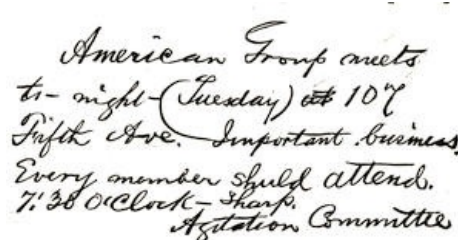 American Group meets
to-night-(Tuesday) at 107
Fifth Ave. Important business
Every member shuld attend.
7:30 O'Clock - Sharp.
Agitation Committee